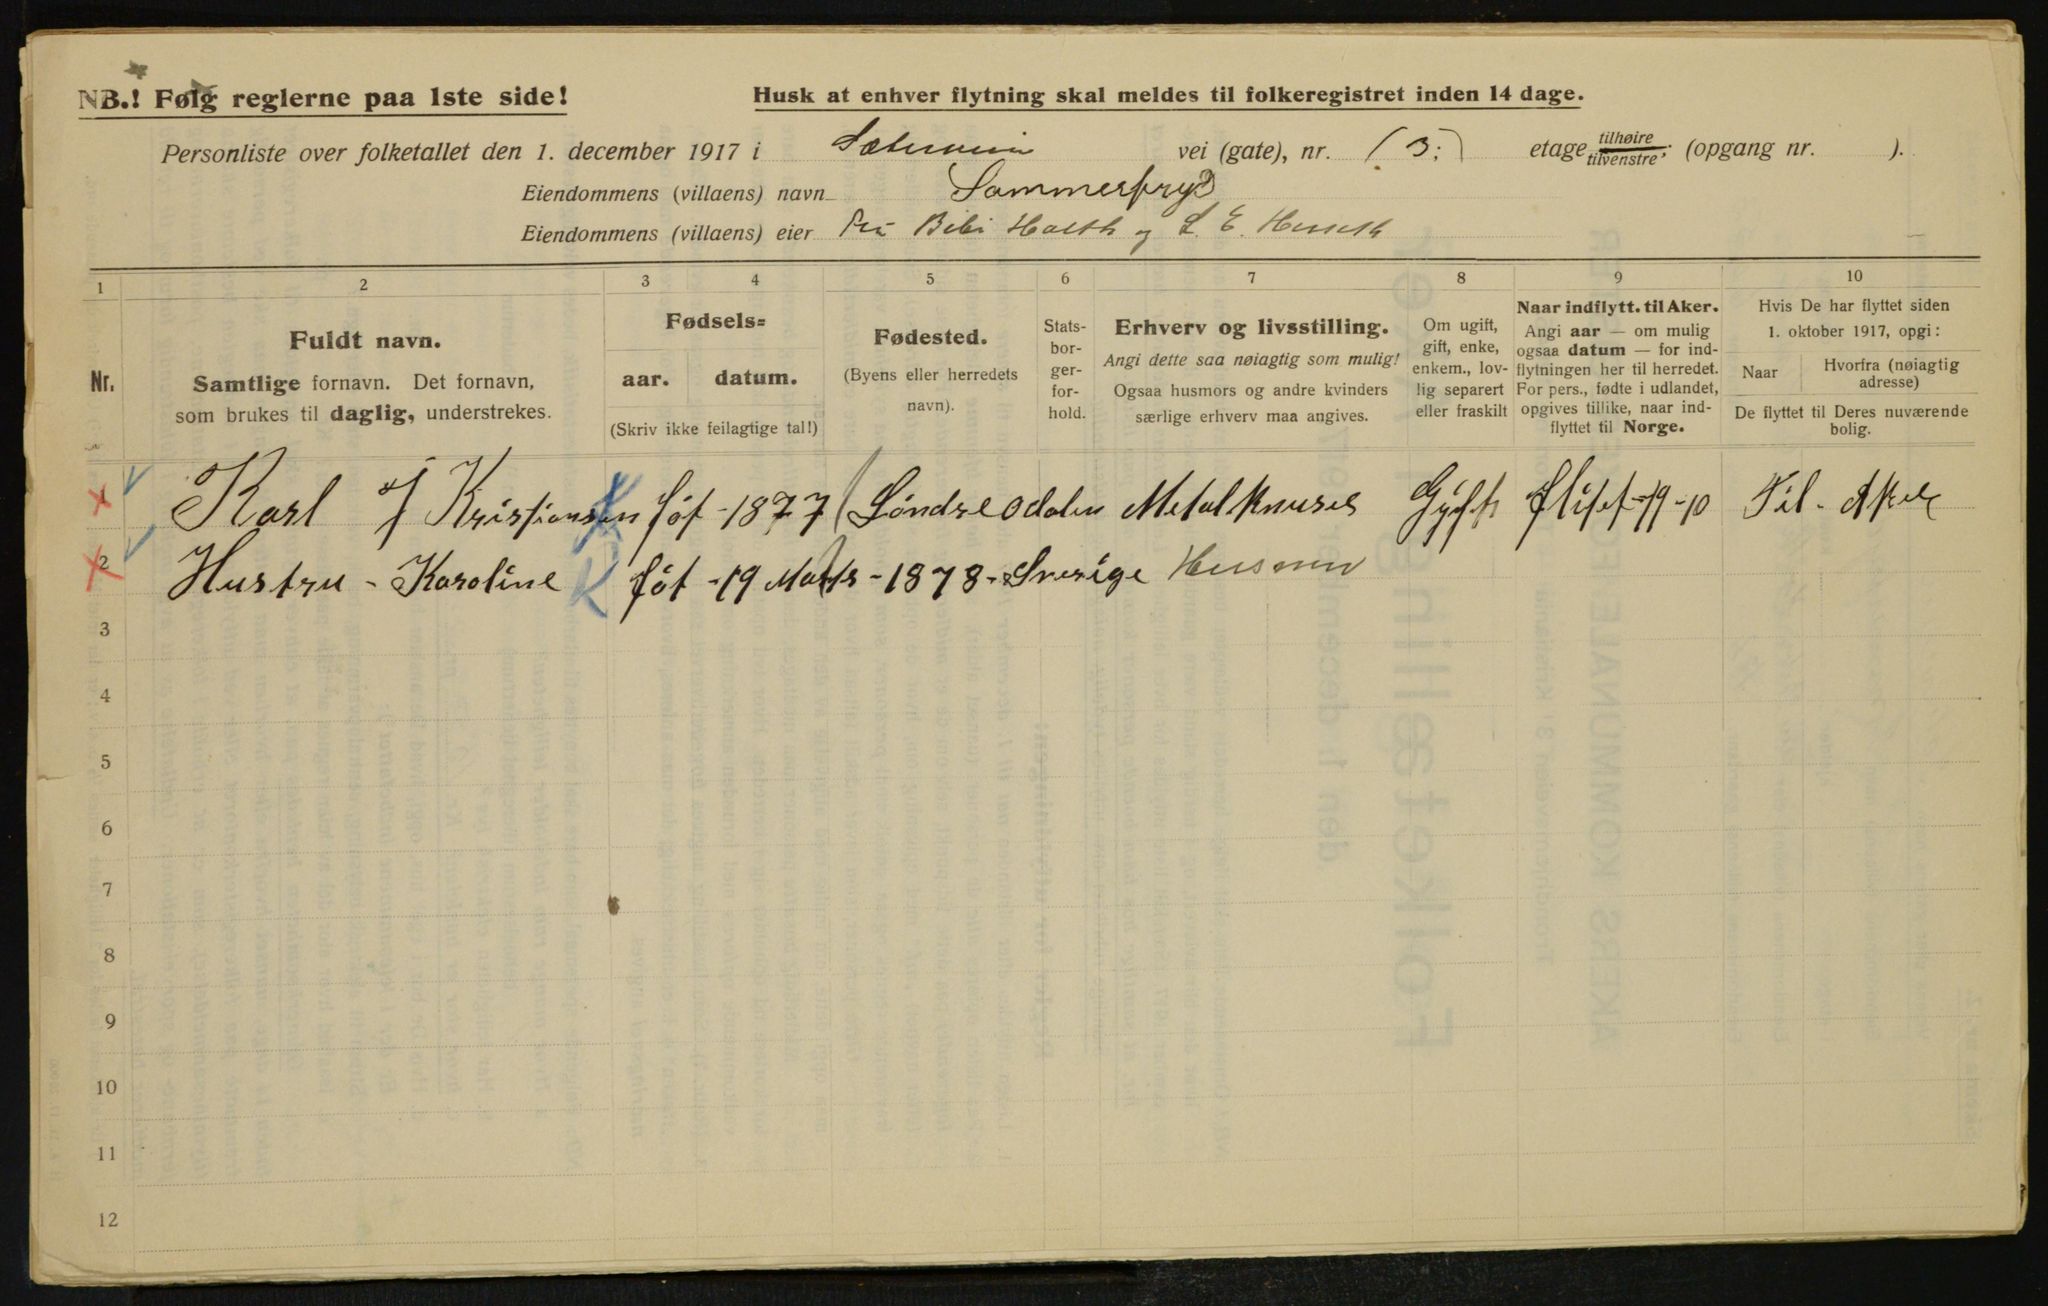 NB.! Følg reglerne paa 1ste side!
Husk at enhver flytning skal meldes til folkeregistret inden 14 dage.
Personliste over folketallet den 1. december 1917 i Sæterveien vei (gate), nr. (3;) etage tilhøire/tilvenstre; (opgang nr. ).
Eiendommens (villaens) navn Sommerfryd
Eiendommens (villaens) eier Bibi og L. E.
1 2 3 4 5 6 7 8 9 10
Nr.
Fuldt navn.
Samtlige fornavn. Det fornavn,
som brukes til daglig, understrekes.
Fødsels=
aar. datum.
(Skriv ikke feilagtige tal!)
Fødested.
(Byens eller herredets
navn).
Stats-
bor-
ger-
for-
hold.
Erhverv og livsstilling.
Angi dette saa nøiagtig som mulig!
Ogsaa husmors og andre kvinders
særlige erhverv maa angives.
Om ugift,
gift, enke,
enkem., lov-
lig separert
eller fraskilt
Naar indflytt. til Aker.
Angi aar — om mulig
ogsaa datum — for ind-
flytningen her til herredet.
For pers., fødte i utlandet,
opgives tillike, naar ind-
flyttet til Norge.
Hvis De har flyttet siden
1. oktober 1917, opgi:
Naar
Hvorfra (nøiagtig
adresse)
De flyttet til Deres nuværende
bolig.
1 Karl J Kristiansen føt - 1877 Søndre Odalen Metalknuser Gift flitet - 19 - 10 Til - Aker
2 Hustru - Karoline K føt - 19 Marts - 1878 - Sverige Husmor
3
4
5
6
7
8
9
10
11
12